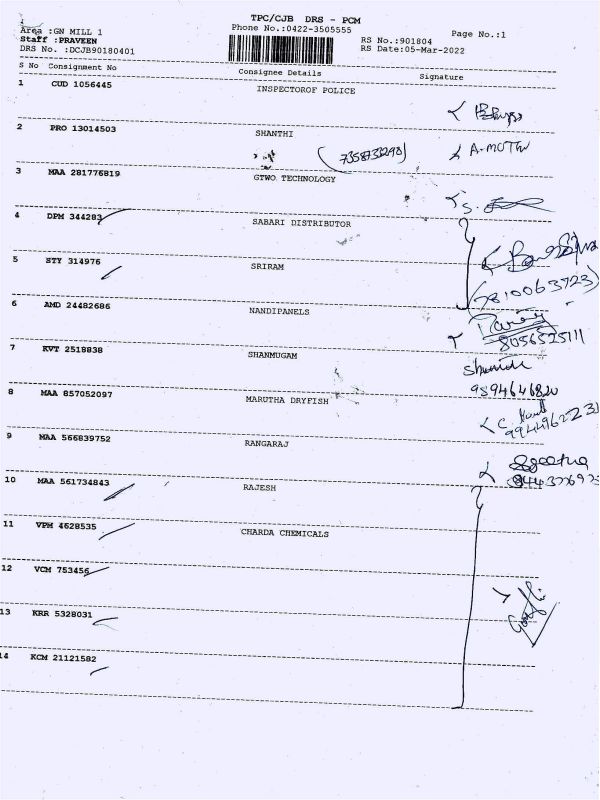 TPC/CJB DRS - PCM
Area :GN MILL 1
Phone No.:0422-3505555
Page No.:1
Staff :PRAVEEN
RS No.:901804
DRS No. :DCJB90180401
RS Date:05-Mar-2022
S No Consignment No Consignee Details Signature
1 CUD 1056445 INSPECTOROF POLICE
2 PRO 13014503 SHANTHI
A-MOTEN
3 MAA 281776819 GTWO. TECHNOLOGY
4 DPM 344283 SABARI DISTRIBUTOR
5 STY 314976 SRIRAM
6 AMD 24482686 NANDIPANELS
8056525111
7 KVT 2518838 SHANMUGAM
9594646820
8 MAA 857052097 MARUTHA DRYFISH
9 MAA 566839752 RANGARAJ
10 MAA 561734843 RAJESH
11 VPM 4628535 CHARDA CHEMICALS
12 VCM 753456
13 KRR 5328031
14 KCM 21121582